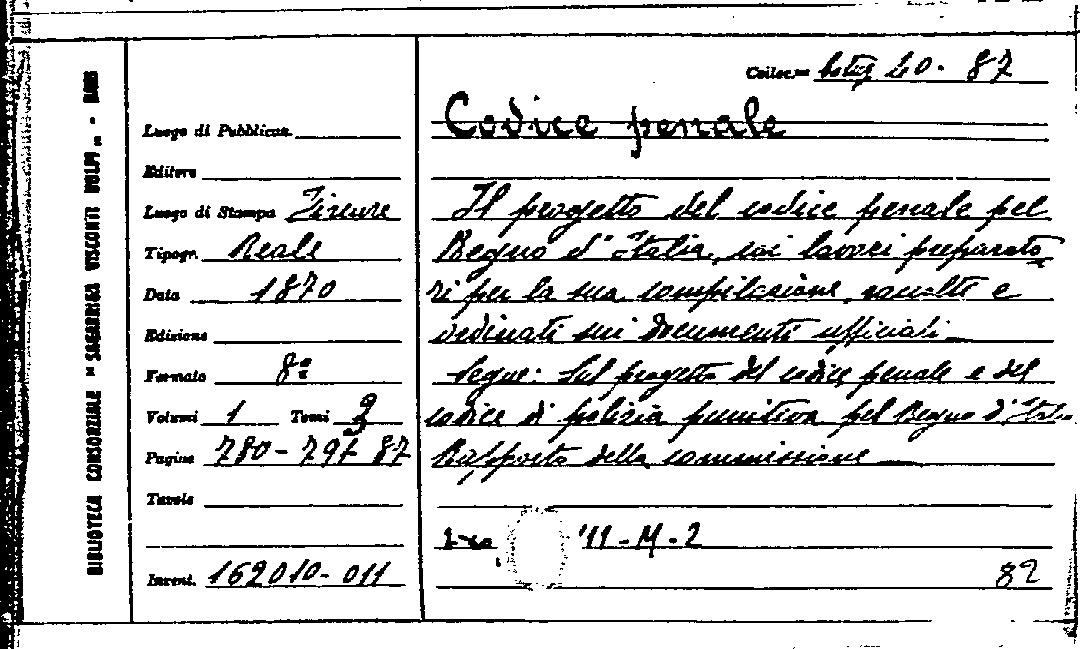 BIBLIOTECA CONSORZIALE "SAGARRIGA VISCONTI VOLPI" - BARI
Colloc.ne 40 - 87
Codice penale
Luogo di Pubblicaz.
Editore
Luogo di Stampa Firenze
Tipogr. Reale
Data 1870
Edizione
Formato 8º
Volumi 1 Tomi
Pagine 780 - 797 87
Tavole
Invent. 162010 - 011
Il progetto del codice penale pel
Regno d'Italia, coi lavori preparato
ri per la sua compilazione, raccolti e
ordinati sui documenti ufficiali
Segue: Sul progetto del codice penale e del
codice di polizia punitiva pel Regno d'Italia
Rapporto della commissione
11 - M - 2
82